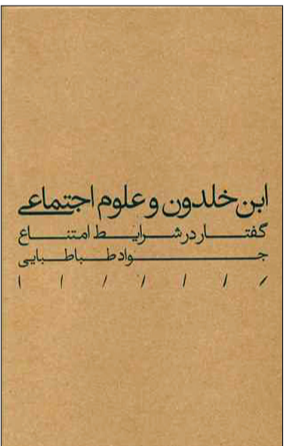 ابن خلدون و علوم اجتماعی
گفتار در شرایط امتناع
جواد طباطبایی